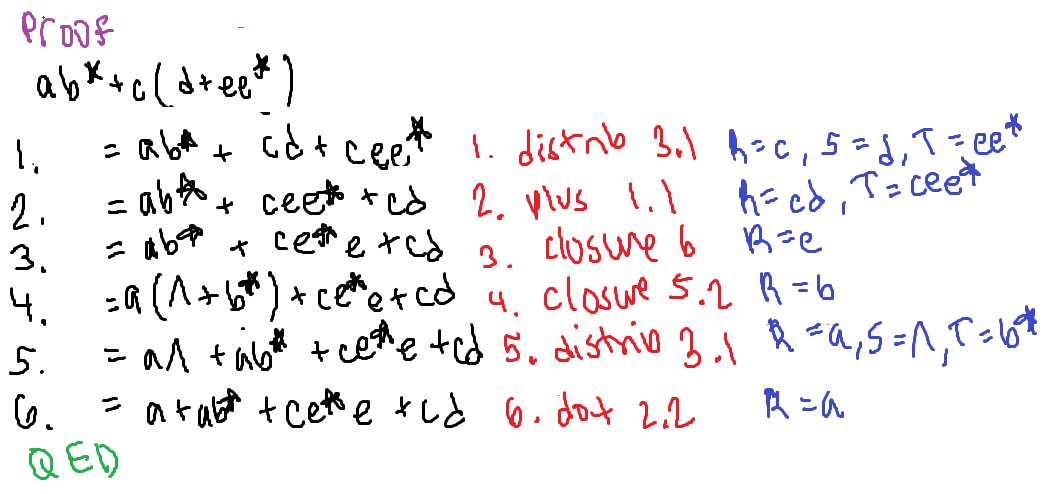 Proof
ab* + c(d+ee*)
1. = ab* + cd + cee* 1. distrib 3.1 R=c, S=d, T=ee*
2. = ab* + cee* + cd 2. plus 1.1 R=cd, T=cee*
3. = ab* + ce*e + cd 3. closure 6 R=e
4. = a(Λ+b*) + ce*e + cd 4. closure 5.2 R=b
5. = aΛ + ab* + ce*e + cd 5. distrib 3.1 R=a, S=Λ, T=b*
6. = a + ab* + ce*e + cd 6. dot 2.2 R=a
QED